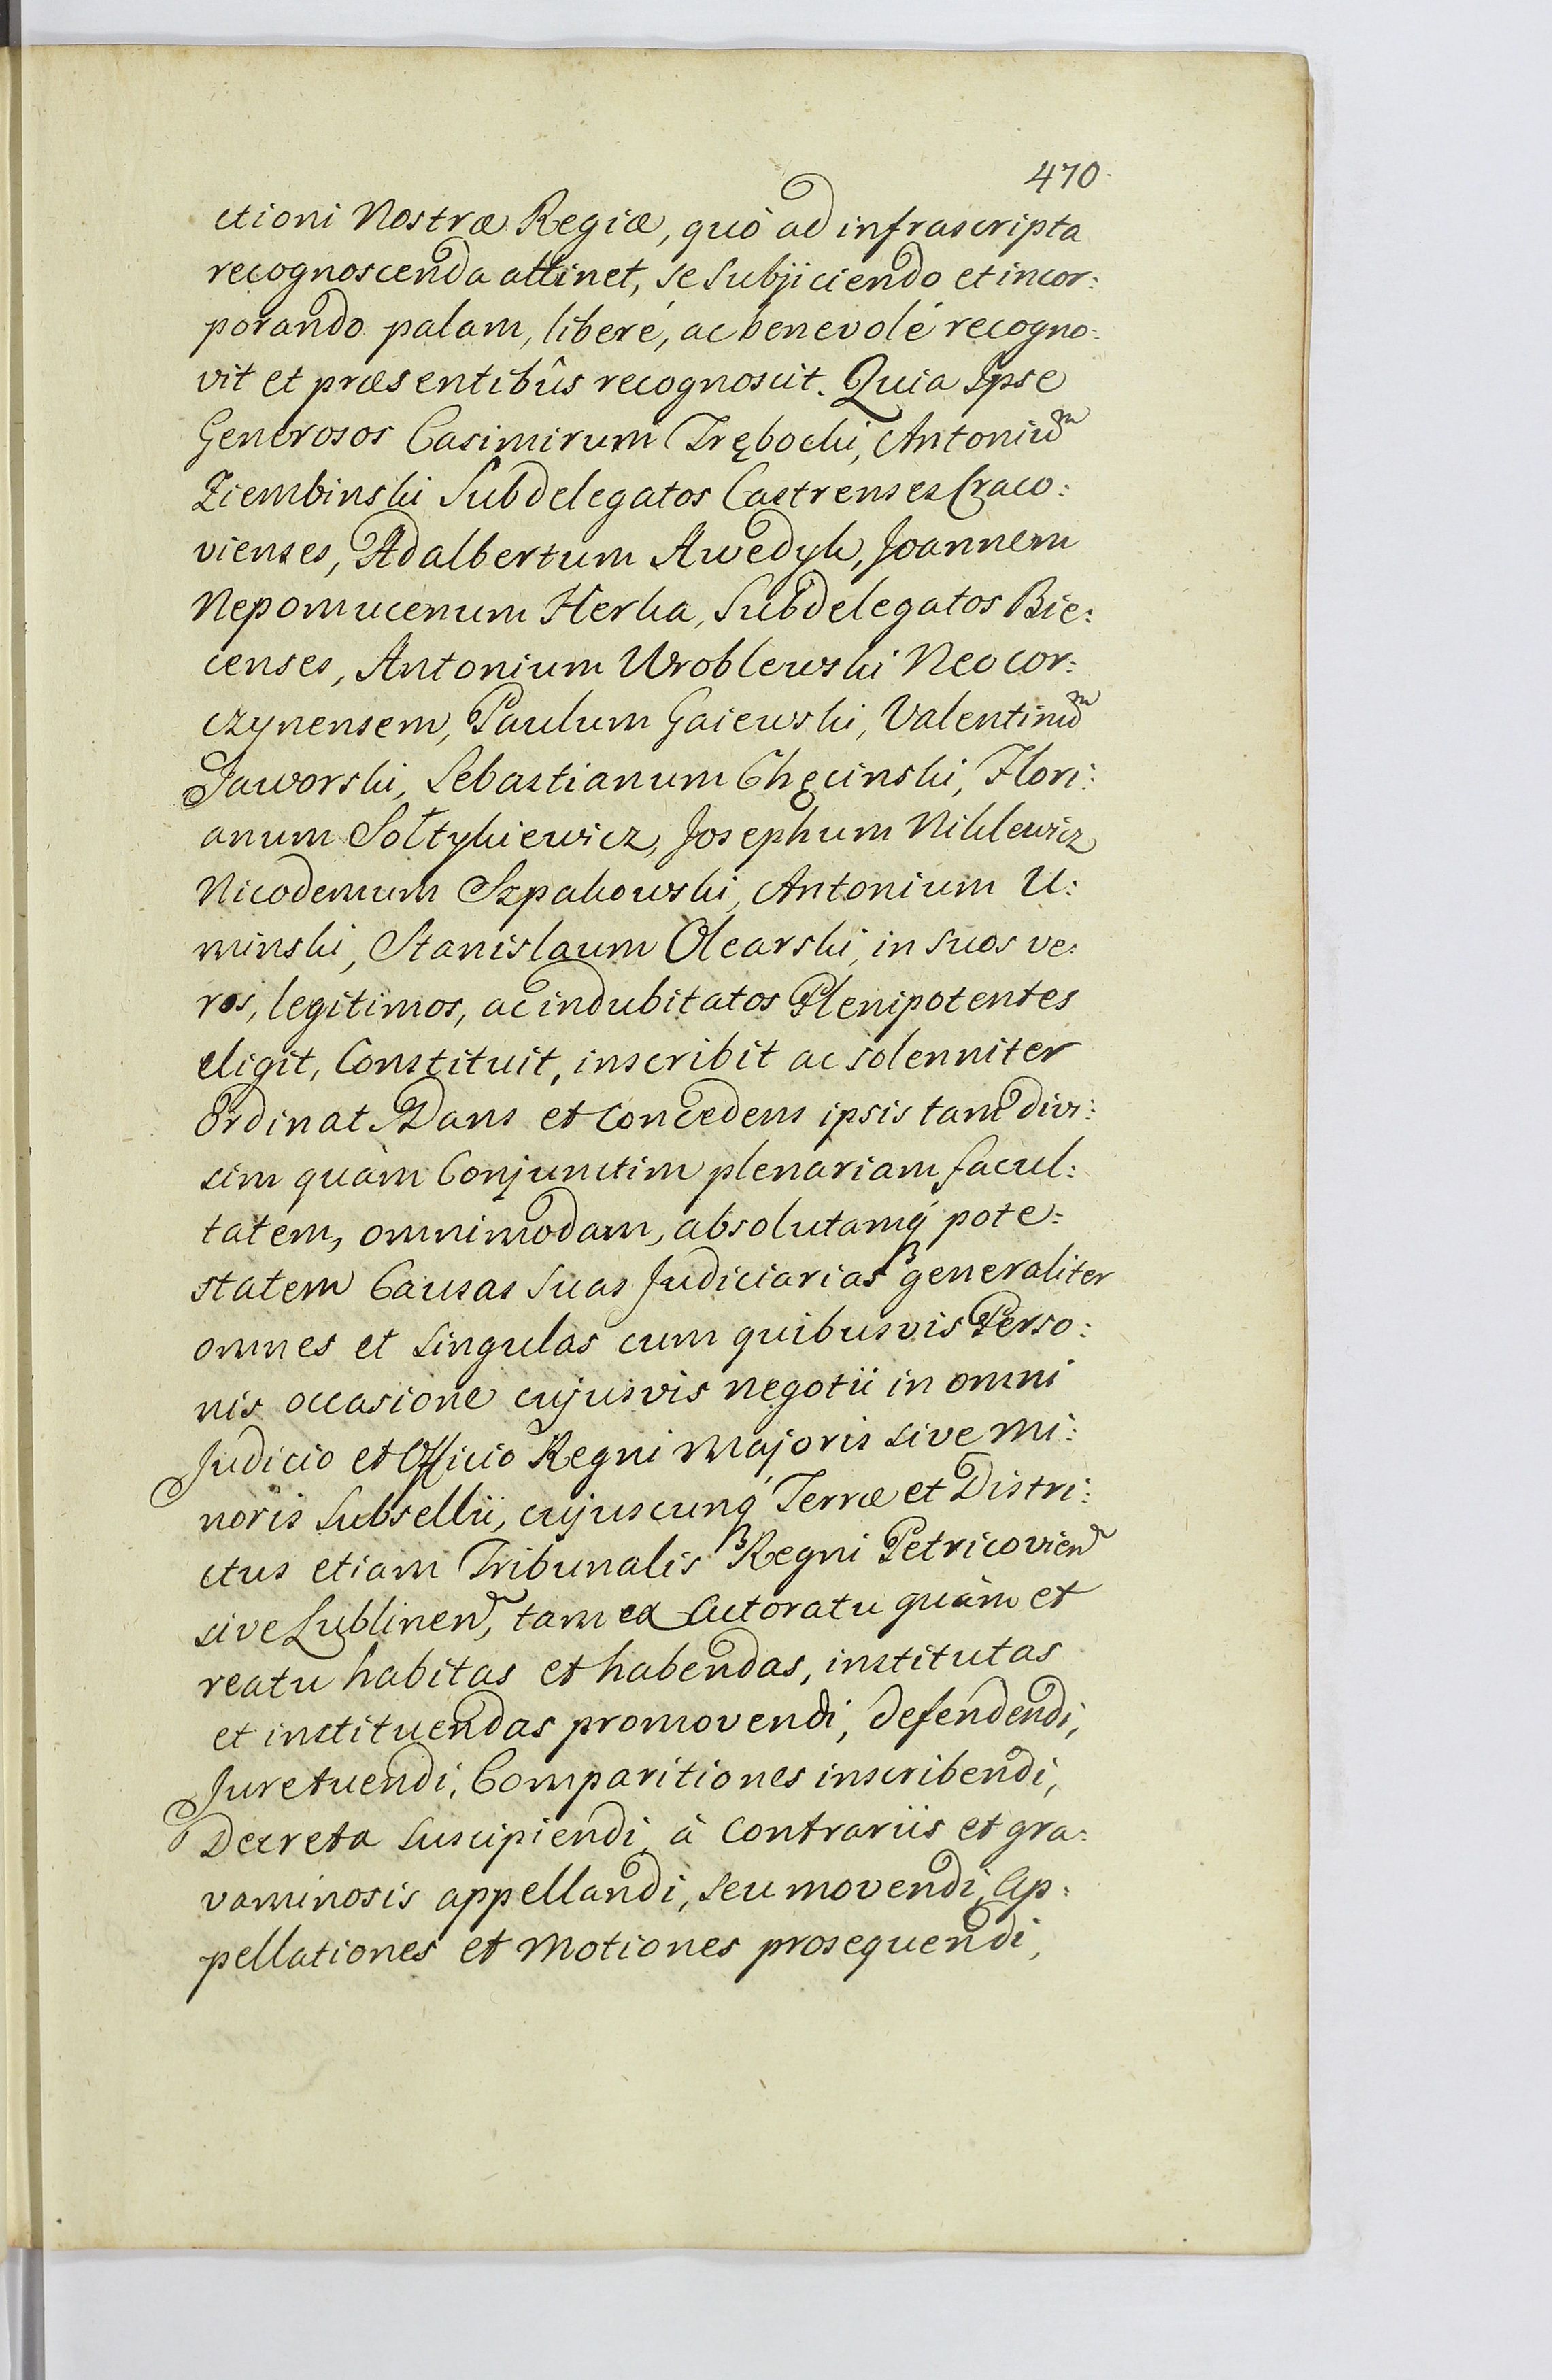 470.
ctioni Nostræ Regiæ, quó ad infrascripta
recognoscenda attinet, se subjiciendo et incor:
porando palam, liberé, ac benevolé recogno:
vit et præsentibûs recognoscit. Quia Ipse
Generosos Casimirum Trębocki, Antoniuͫ
Ziembinski Subdelegatos Castrenses Craco:
vienses, Adalbertum Awedyk, Joannem
Nepomucenum Herka, Subdelegatos Bie:
censes, Antonium Wroblewski Neocor:
czynensem, Paulum Gaiewski, Valentinuͫ
Jaworski, Sebastianum Chęcinski, Flori:
anum Sołtykiewicz, Josephum Niklewicz
Nicodemum Szpakowski, Antonium U:
minski, Stanislaum Olearski, in suos ve:
ros, legitimos, ac indubitatos Plenipotentes
eligit, Constituit, inscribit ac solenniter
Ordinat. Dans et Concedens ipsis tam divi:
sim quàm Conjunctim plenariam facul:
tatem, omnimodam, absolutamq́ pote:
statem Causas suas Judiciarias generaliter
omnes et singulas cum quibusvis Perso:
nis occasione cujusvis negotii in omni
Judicio et Officio Regni Majoris sive Mi:
noris Subsellii, cujuscunq́ Terræ et Distri:
ctus etiam Tribunalis Regni Petricovien̄
sive Lublinen̄, tam ex Actoratu quàm et
reatu habitas et habendas, institutas
et instituendas promovendi, defendendi,
Juretuendi, Comparitiones inscribendi,
Decreta suscipiendi, à Contrariis et gra:
vaminosis appellandi, seu movendi, Ap:
pellationes et Motiones prosequendi,